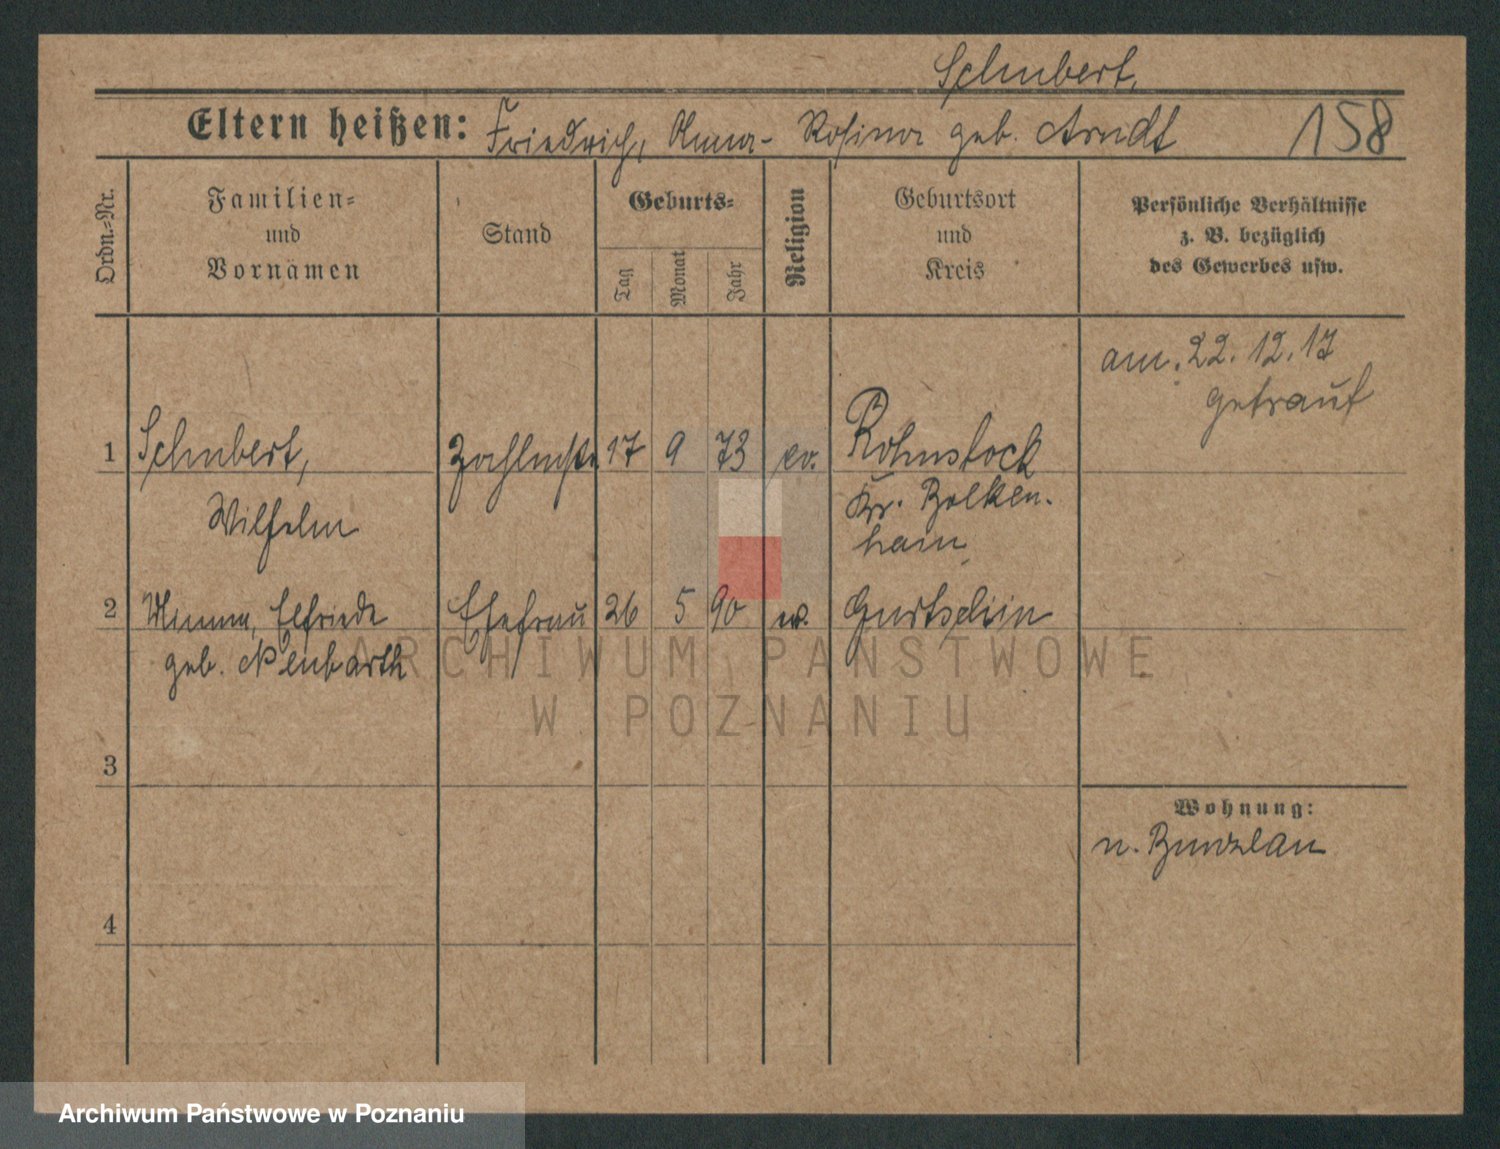 Schubert,
Eltern heißen: Friedrich, Anna- Rosina geb. Arndt 158
Ordn.-Nr.
Familien-
und
Vornamen
Stand
Geburts-
Tag
Monat
Jahr
Religion
Geburtsort
und
Kreis
Persönliche Verhältnisse
z. B. bezüglich
des Gewerbes usw.
am. 22. 12. 17
getraut
1 Schubert, Zahlmstr 17 9 73 ev. Rohnstock
Wilhelm Kr. Bolken-
hain
2 Minna, Elfriede Ehefrau 26 5 90 ev. Gurtschin
geb. Neubarth
3
Wohnung:
n. Bunzlau
4
ARCHIWUM PAŃSTWOWE
W POZNANIU
Archiwum Państwowe w Poznaniu